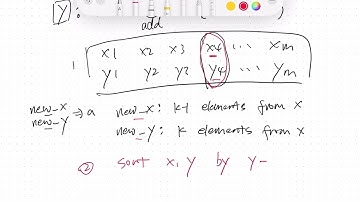 Y :
add
1 x1 x2 x3 x4 ... xm
y1 y2 y3 y4 ... ym
new_x ⇒ a new_x: k-1 elements from x
new_y new_y: k elements from x
② sort x, y by y-